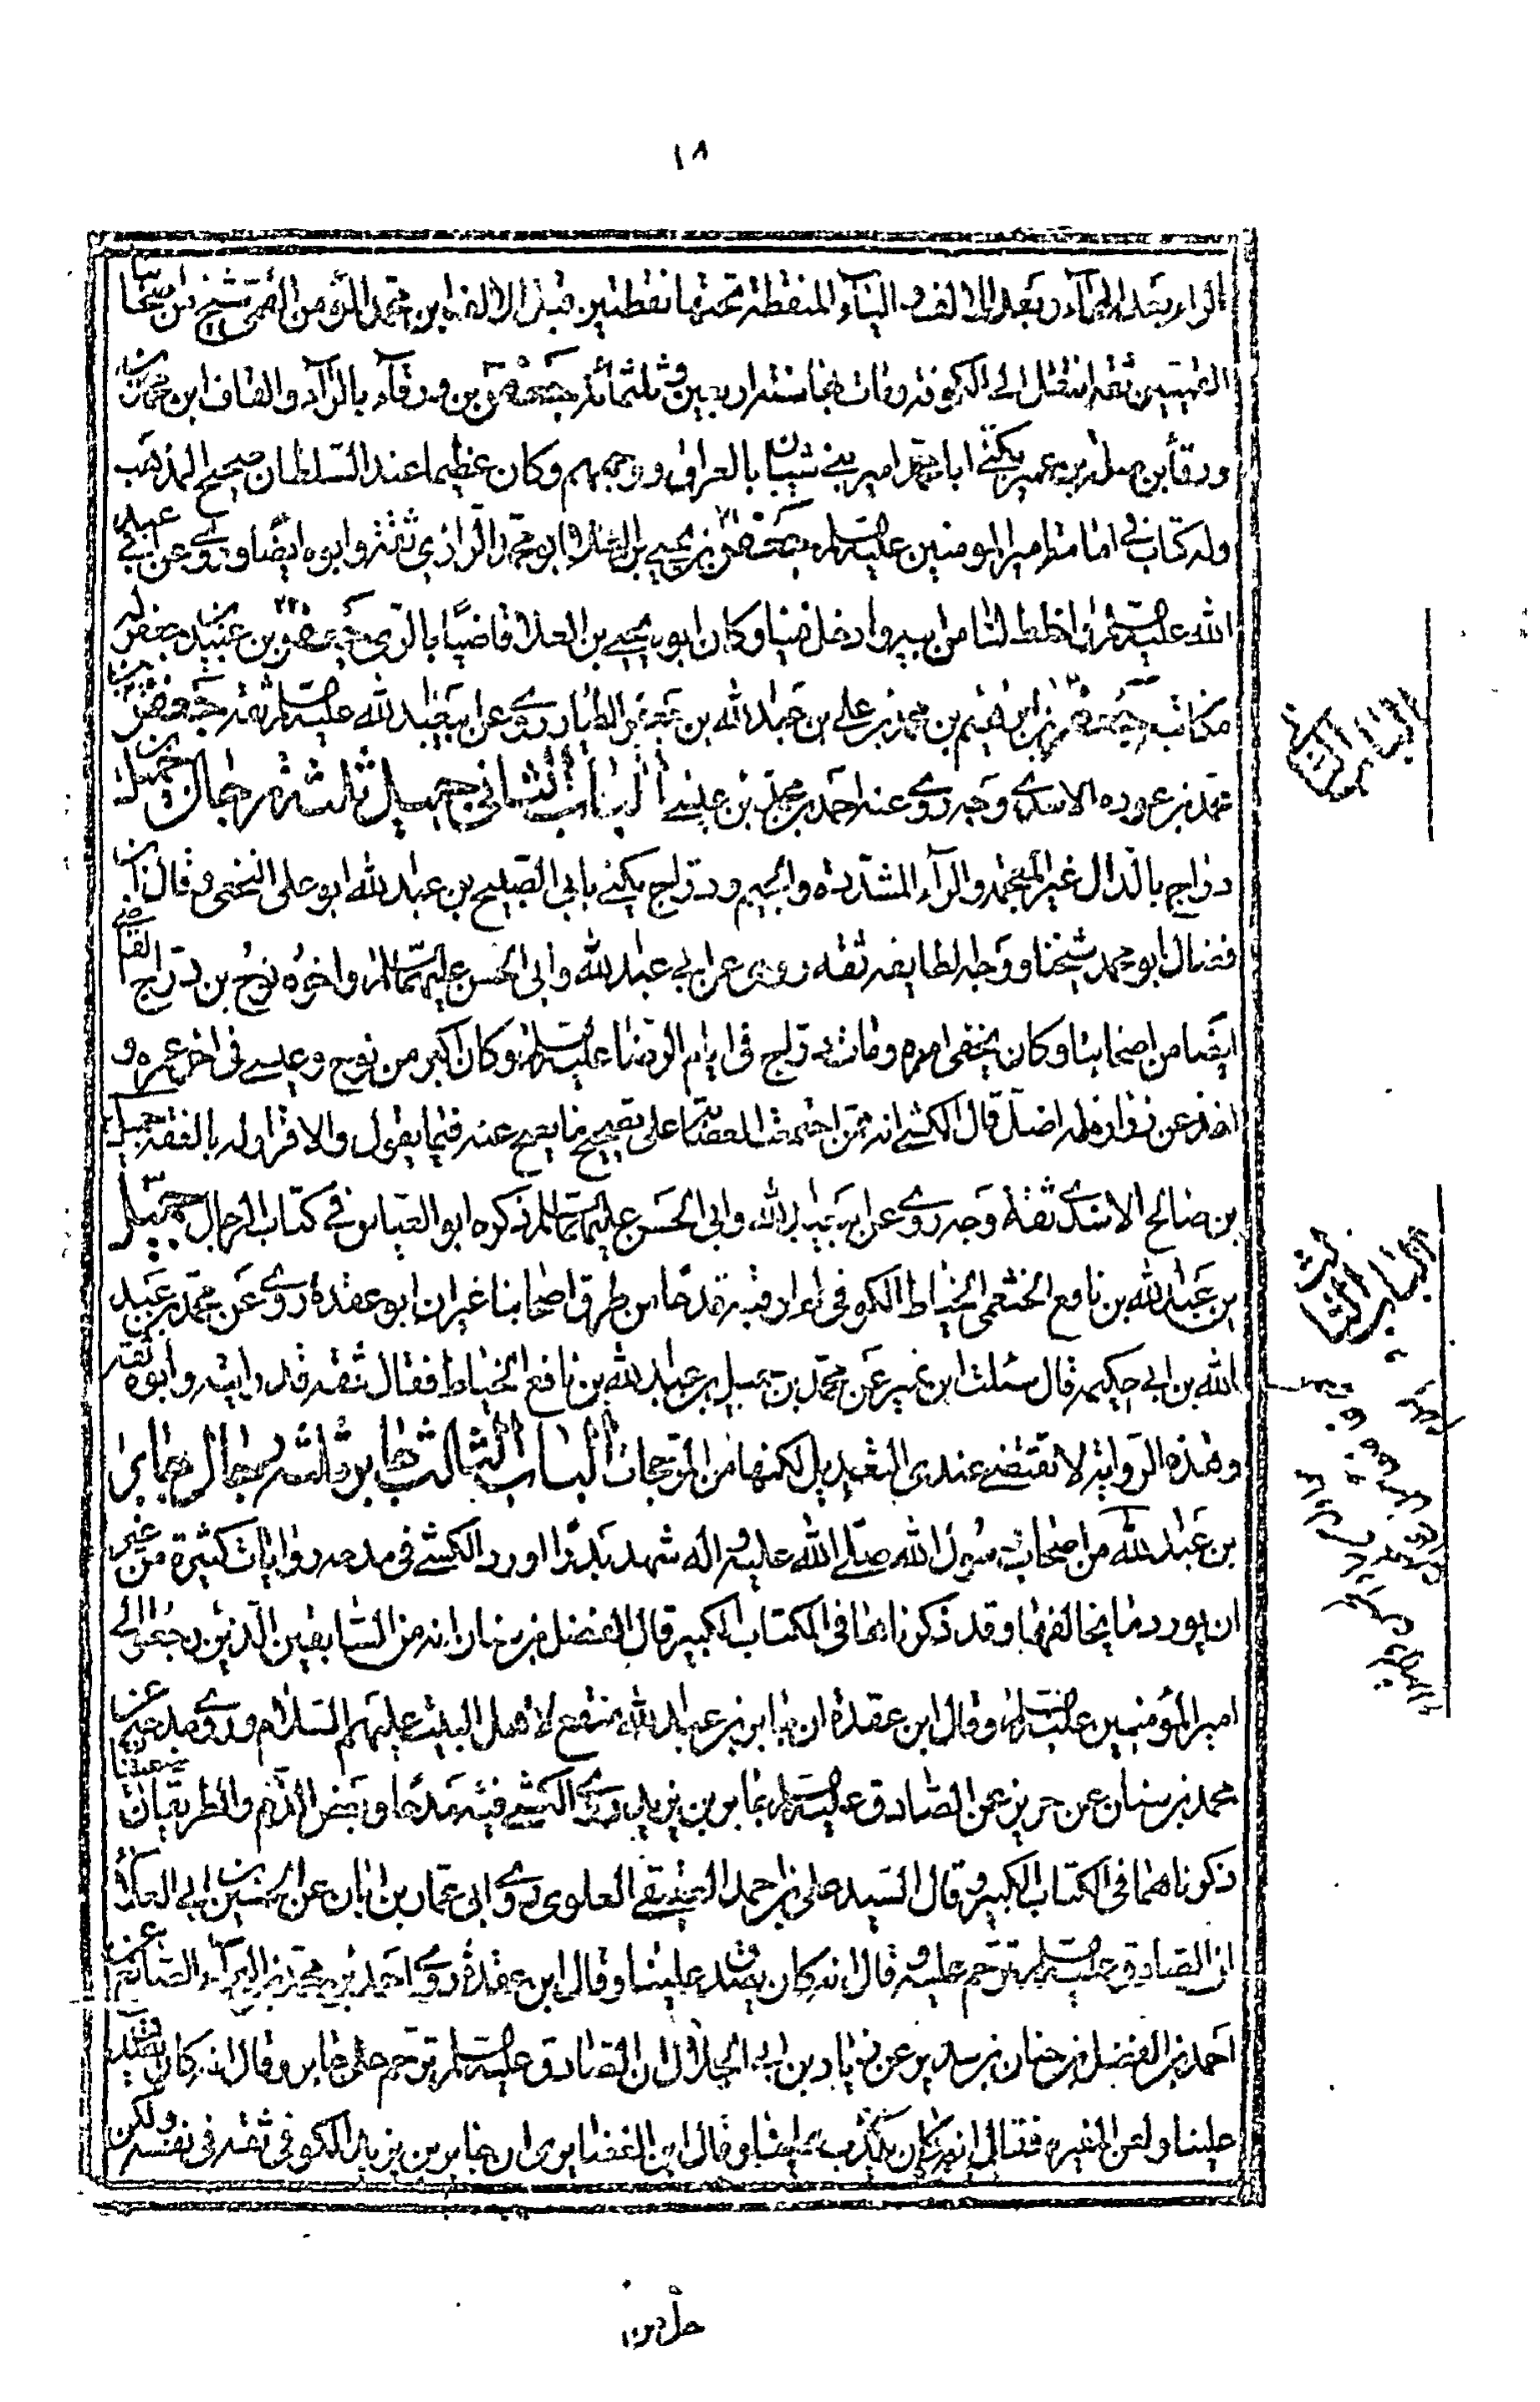 ١٨
الراء بعد الهاء وبعد الالف الياء المنقطة تحتها نقطتين قبل الالف ابن محمد المؤمن القمى شيخ من اصحابنا
القميين ثقة انتقل الى الكوفة ومات بها سنة اربعين وثلثمائة جعفر بن ورقاء بالراء والقاف ابن محمد بن
ورقاء بن صلة بن عمير يكنى ابا محمد امير بنى شيبان بالعراق ووجههم وكان عظيما عند السلطان صحيح المذهب
وله كتاب فى امامة امير المومنين عليه السلم جعفر بن يحيى بن العلا ابو محمد الرازى ثقة وابوه ايضا روى عن ابى عبد
الله عليه السلم اخلط لنا من ابيه وادخل فينا وكان ابوه يحيى بن العلا قاضيا بالرى جعفر بن
مكانته جعفر بن ابراهيم بن محمد بن على بن عبد الله بن جعفر الطيار روى عن ابيعبد الله عليه السلم ثقة جعفر بن
محمد بن الاسدى وجه روى عنه احمد بن محمد بن عيسى الباب الثانى جميل ثلثة رجال جميل بن
دراج بالدال غير المعجمة والراء المشددة والجيم ودراج يكنى بابى الصبيح بن عبد الله ابو على النخعى وقال ابن
فضال ابو محمد شيخنا ووجه الطايفة ثقة روى عن ابى عبد الله وابى الحسن عليهما السلم واخوه نوح بن دراج القاضى
ايضا من اصحابنا وكان يخفى امره ومات دراج فى ايام الرضا عليه السلم وكان اكبر من نوح وعمى فى اخر عمره و
اخذ عن زرارة له اصل قال الكشى انه ممن اجتمعت العصابة على تصحيح ما يصح عنه فيما يقول والاقرار له بالفقه جميل
بن صالح الاسدى ثقة وجه روى عن ابيعبد الله وابى الحسن عليهما السلم ذكره ابو العباس فى كتاب الرجال جميل
بن عبد الله بن نافع الخثعمى الخياط الكوفى لم ار فيه مدحا من طرق اصحابنا غير ان ابو عقدة روى عن محمد بن عبد
الله بن ابى حكيمة قال سئلت ابن نمير عن محمد بن جميل بن عبد الله بن نافع الخياط فقال ثقة قد رايته وابوه ثقة
وهذه الرواية لا تقتضى عندى التعديل لكنها من المرجحات الباب الثالث جابر ثلثة رجال جابر
بن عبد الله من اصحاب رسول الله صلى الله عليه واله شهد بدرا اورد الكشى فى مدحه روايات كثيرة من غير
ان يورد ما يخالفها وقد ذكرناها فى الكتاب الكبير قال الفضل بن شاذان انه من السابقين الذين رجعوا الى
امير المؤمنين عليه السلم وقال ابن عقدة ان جابر بن عبد الله منقطع لاهل البيت عليهم السلام وروى مدحه عن
محمد بن سنان عن حريز عن الصادق عليه السلم جابر بن يزيد روى الكشى فيه مدحا وبعض الذم والطريقان ضعيفان
ذكرناهما فى الكتاب الكبير وقال السيد على بن احمد العقيقى العلوى روى ابى عمار بن ابان عن الحسين بن ابى العلا
ان الصادق عليه السلم ترحم عليه وقال انه كان يصدق علينا وقال ابن عقدة روى احمد بن محمد بن البراء الصائغ عن
احمد بن الفضل بن حنان بن سدير عن زياد بن ابى الحلال ان الصادق عليه السلم ترحم على جابر وقال انه كان يصدق
علينا ولعن المغيرة وقال انه كان يكذب علينا وقال ابن الغضايرى ان جابر بن يزيد الكوفى ثقة فى نفسه ولكن
جل من
الباب الثانى
الباب الثالث